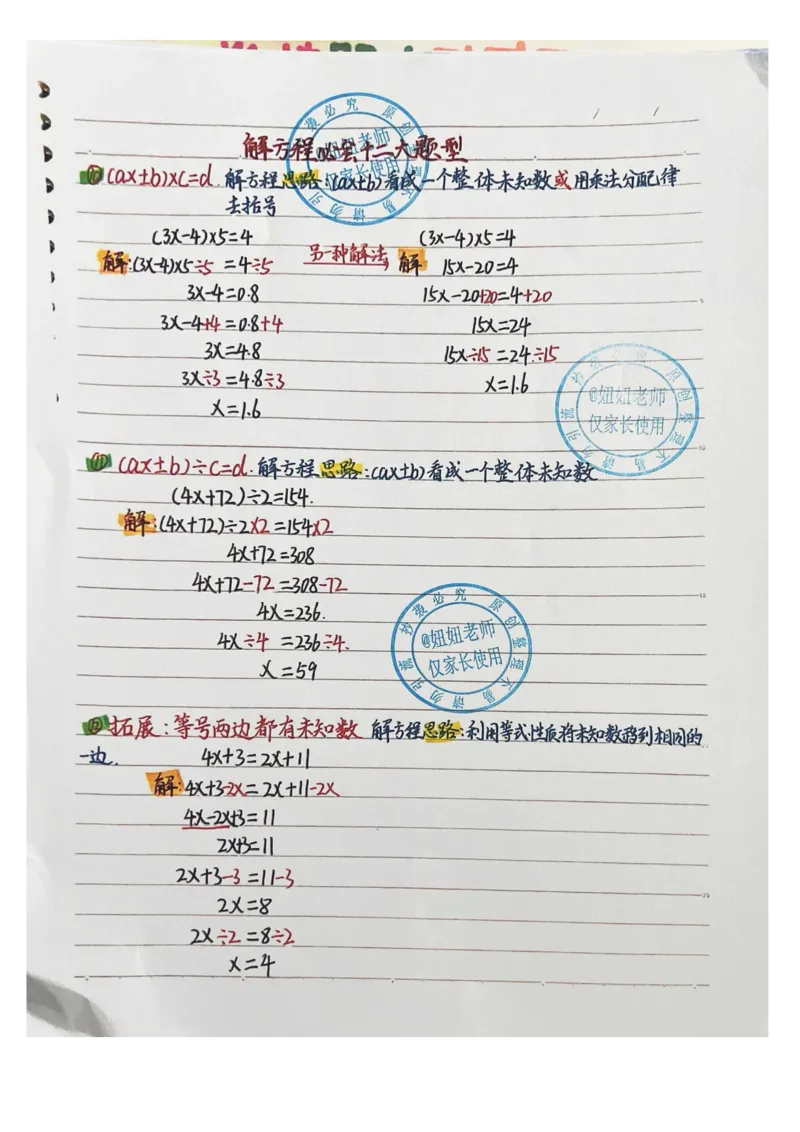 解方程必会十二大题型
⑩ (ax±b)×c=d. 解方程思路:(ax±b)看成一个整体未知数或用乘法分配律
去括号
(3x-4)×5=4
解:(3x-4)×5÷5 =4÷5
3x-4=0.8
3x-4+4=0.8+4
3x=4.8
3x÷3=4.8÷3
x=1.6
另一种解法
(3x-4)×5=4
解 15x-20=4
15x-20+20=4+20
15x=24
15x÷15=24÷15
x=1.6
⑪ (ax±b)÷c=d. 解方程思路:(ax±b)看成一个整体未知数
(4x+72)÷2=154.
解:(4x+72)÷2×2=154×2
4x+72=308
4x+72-72=308-72
4x=236.
4x÷4 =236÷4.
x=59
⑫ 拓展:等号两边都有未知数 解方程思路:利用等式性质将未知数移到相同的
一边.
4x+3=2x+11
解:4x+3-2x=2x+11-2x
4x-2x+3=11
2x+3=11
2x+3-3=11-3
2x=8
2x÷2=8÷2
x=4
@妞妞老师
仅家长使用
原创整理不易请勿引流抄袭必究
@妞妞老师
仅家长使用
原创整理不易请勿引流抄袭必究
@妞妞老师
仅家长使用
原创整理不易请勿引流抄袭必究